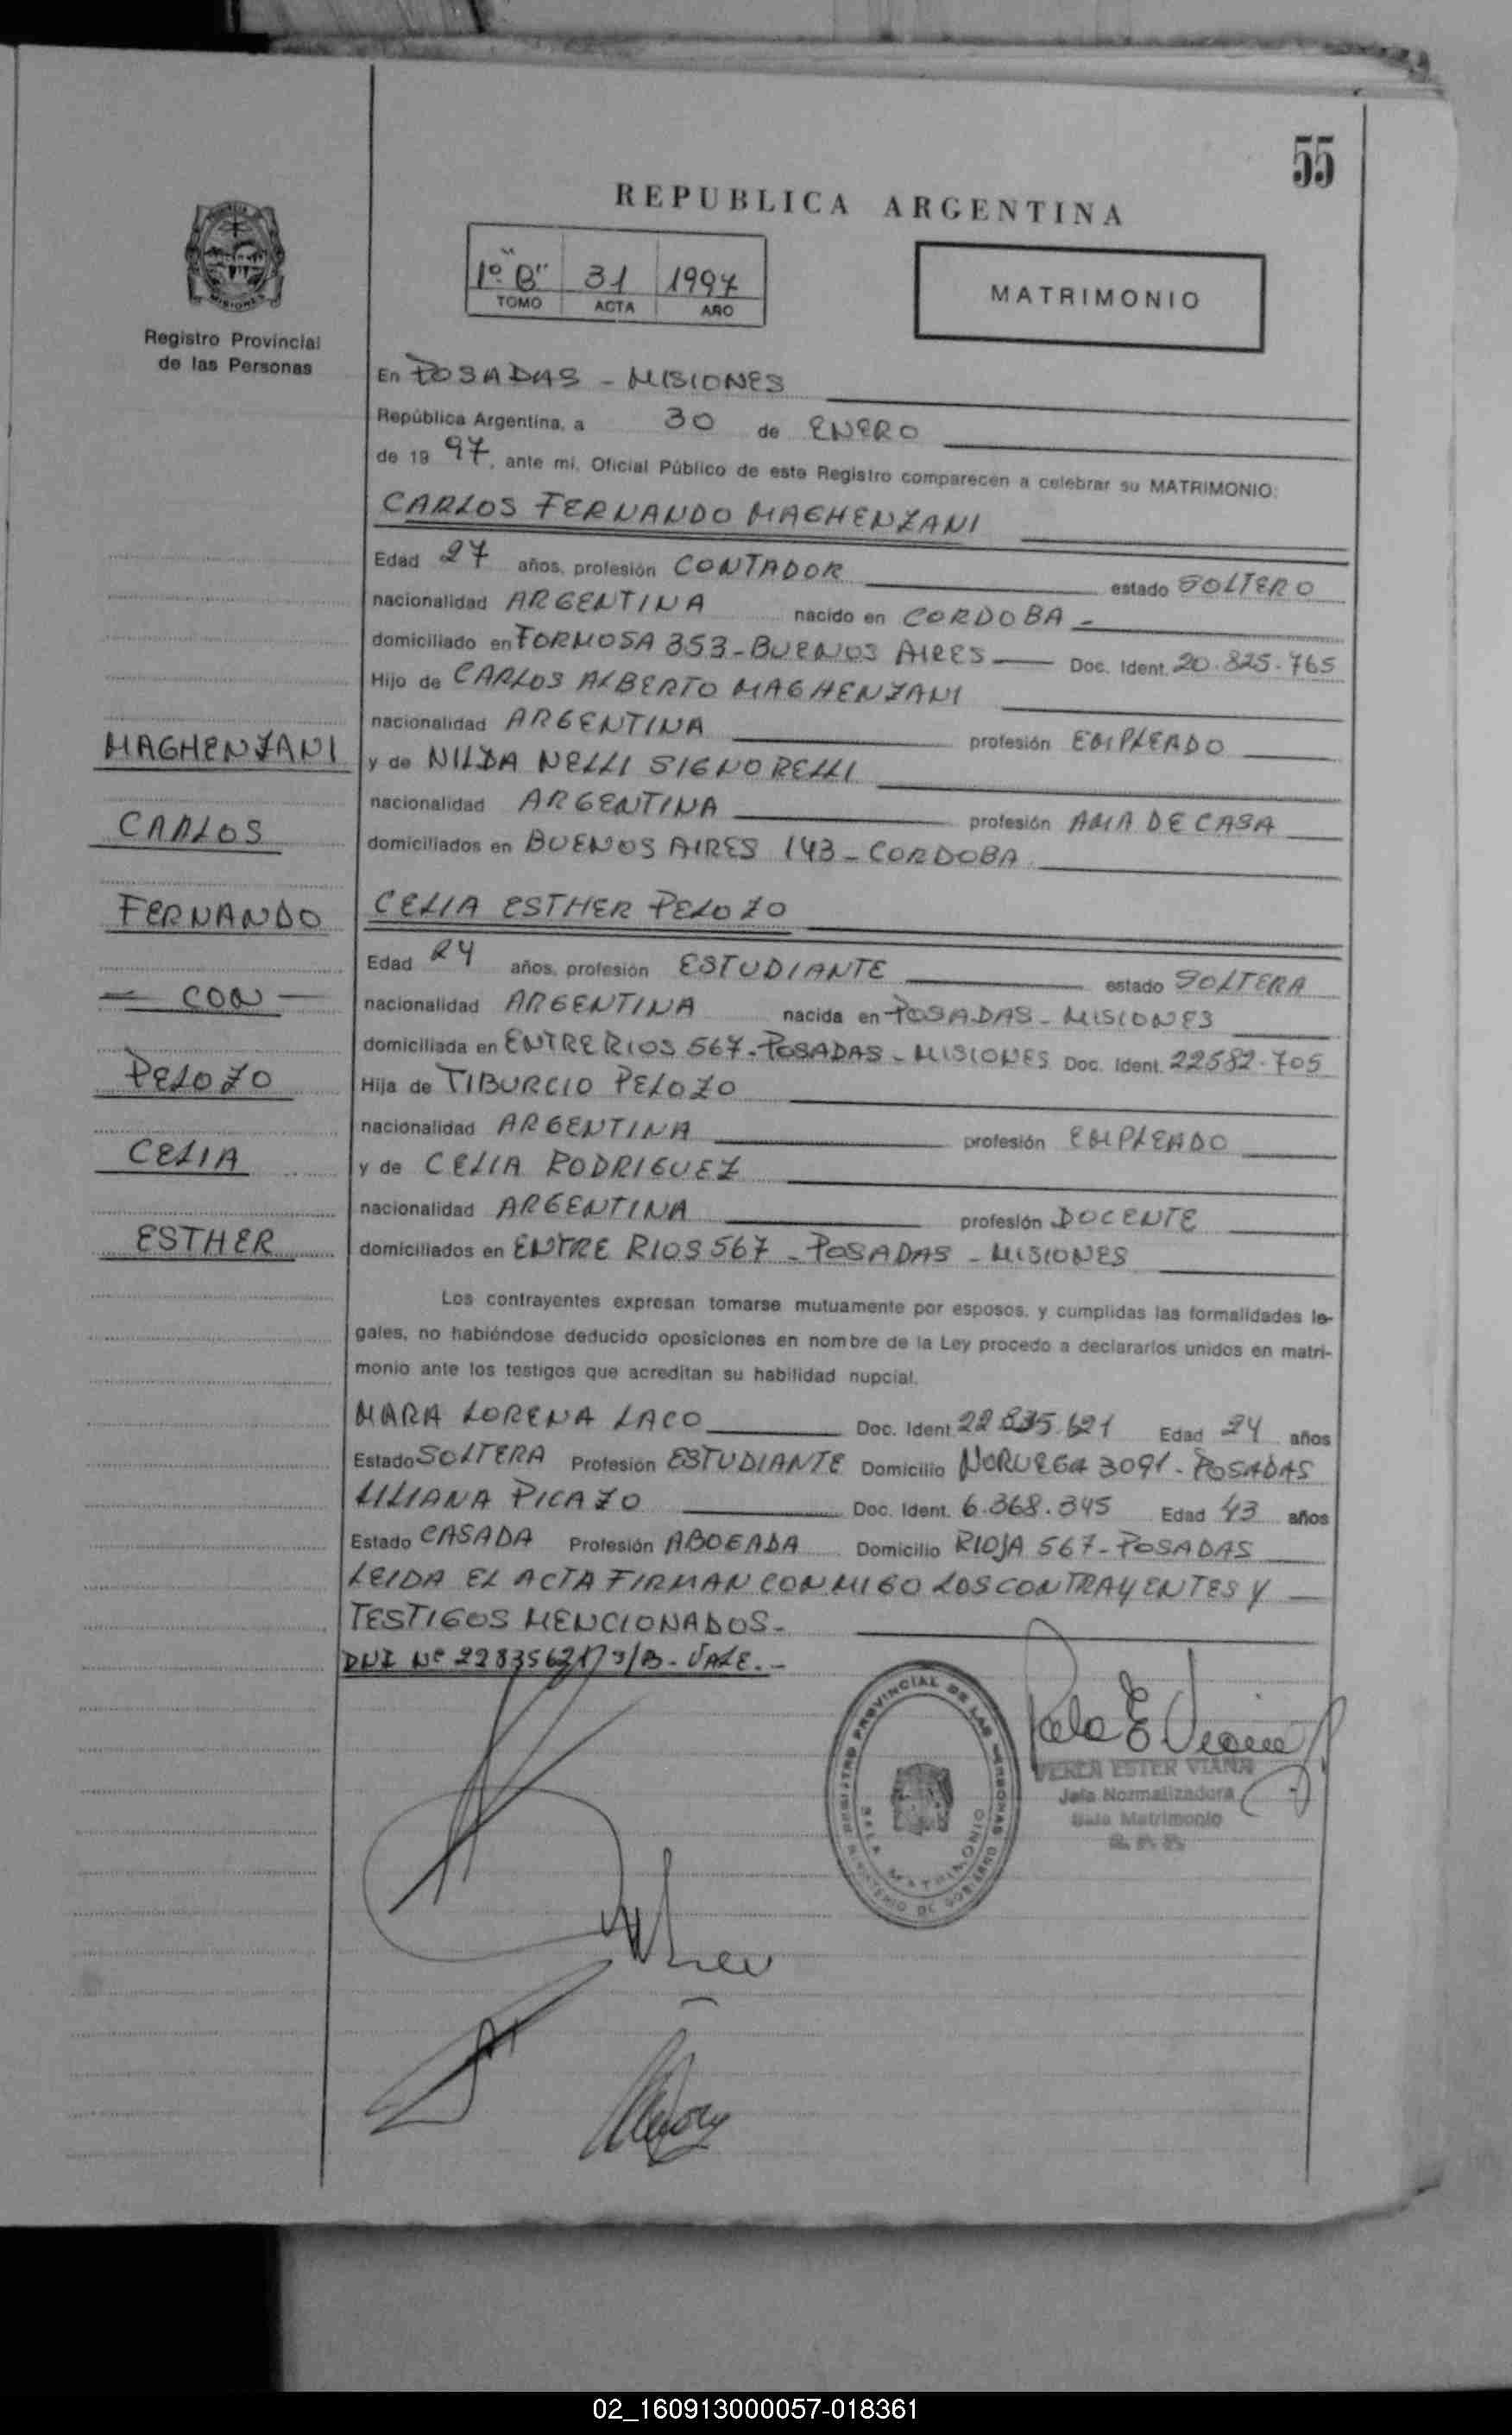 55
REPUBLICA ARGENTINA
1º "B" 31 1997
TOMO ACTA AÑO
MATRIMONIO
MISIONES
Registro Provincial
de las Personas
En POSADAS - MISIONES
República Argentina, a 30 de ENERO
de 19 97, ante mi, Oficial Público de este Registro comparecen a celebrar su MATRIMONIO:
CARLOS FERNANDO MAGHENZANI
Edad 27 años, profesión CONTADOR estado SOLTERO
nacionalidad ARGENTINA nacido en CORDOBA -
domiciliado en FORMOSA 353 - BUENOS AIRES - Doc. Ident. 20.825.765
Hijo de CARLOS ALBERTO MAGHENZANI
nacionalidad ARGENTINA profesión EMPLEADO
y de NILDA NELLI SIGNORELLI
nacionalidad ARGENTINA profesión AMA DE CASA
domiciliados en BUENOS AIRES 143 - CORDOBA
CELIA ESTHER PELOZO
Edad 24 años, profesión ESTUDIANTE estado SOLTERA
nacionalidad ARGENTINA nacida en POSADAS - MISIONES
domiciliada en ENTRE RIOS 567 - POSADAS - MISIONES Doc. Ident. 22582.705
Hija de TIBURCIO PELOZO
nacionalidad ARGENTINA profesión EMPLEADO
y de CELIA RODRIGUEZ
nacionalidad ARGENTINA profesión DOCENTE
domiciliados en ENTRE RIOS 567 - POSADAS - MISIONES
MAGHENZANI
CARLOS
FERNANDO
- CON -
PELOZO
CELIA
ESTHER
Los contrayentes expresan tomarse mutuamente por esposos, y cumplidas las formalidades le-
gales, no habiéndose deducido oposiciones en nombre de la Ley procedo a declararlos unidos en matri-
monio ante los testigos que acreditan su habilidad nupcial.
MARA LORENA LACO Doc. Ident 22.835.621 Edad 24 años
Estado SOLTERA Profesión ESTUDIANTE Domicilio NORUEGA 3091 - POSADAS
LILIANA PICAZO Doc. Ident. 6.368.345 Edad 43 años
Estado CASADA Profesión ABOGADA Domicilio RIOJA 567 - POSADAS
LEIDA EL ACTA FIRMAN CONMIGO LOS CONTRAYENTES Y
TESTIGOS MENCIONADOS.-
DNI Nº 22835621 S/B - VALE.-
REGISTRO PROVINCIAL DE LAS PERSONAS
SALA MATRIMONIO
MINISTERIO DE GOBIERNO
PERLA ESTER VIANA
Jefa Normalizadora
Sala Matrimonio
02_160913000057-018361